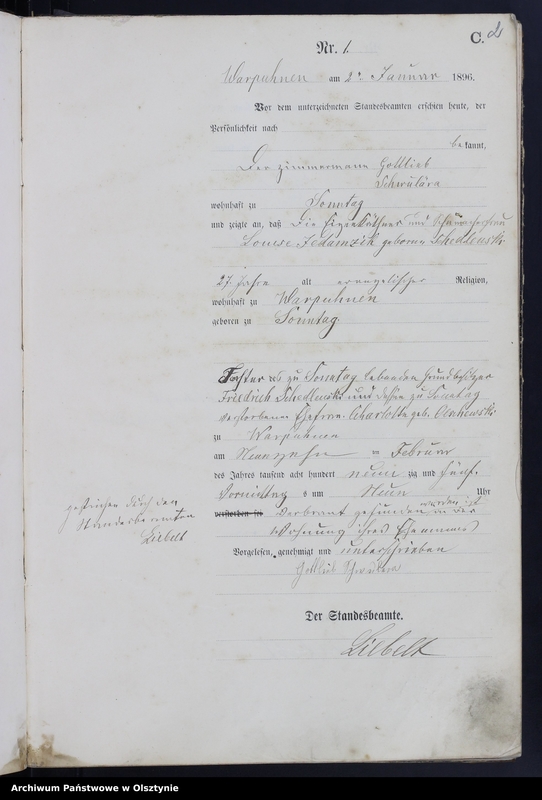 C. 2
Nr. 1
Warpuhnen am 2n Januar 1896.
Vor dem unterzeichneten Standesbeamten erschien heute, der
Persönlichkeit nach
bekannt,
Der Zimmermann Gottlieb
Schwulera
wohnhaft zu Sonntag
und zeigte an, daß die Eigenkäthner und
Louise Jedamzik geborne Schedlewski
27 Jahre alt evangelischer Religion,
wohnhaft zu Warpuhnen
geboren zu Sonntag
Tochter des zu Sonntag lebenden Grundbesitzer
Friedrich Schedlewski und dessen zu Sonntag
verstorbenen Ehefrau Charlotte geb.
zu Warpuhnen
am Neunzehn Februar
des Jahres tausend acht hundert neun zig und fünf
Vormittag s um Neun Uhr
verstorben sei verbrant gefunden worden ist in der
Wohnung ihres Ehemannes
Vorgelesen, genehmigt und unterschrieben
Gottlieb Schwulera
gestrichen durch den
Standesbeamten
Liebelt
Der Standesbeamte.
Liebelt
Archiwum Państwowe w Olsztynie